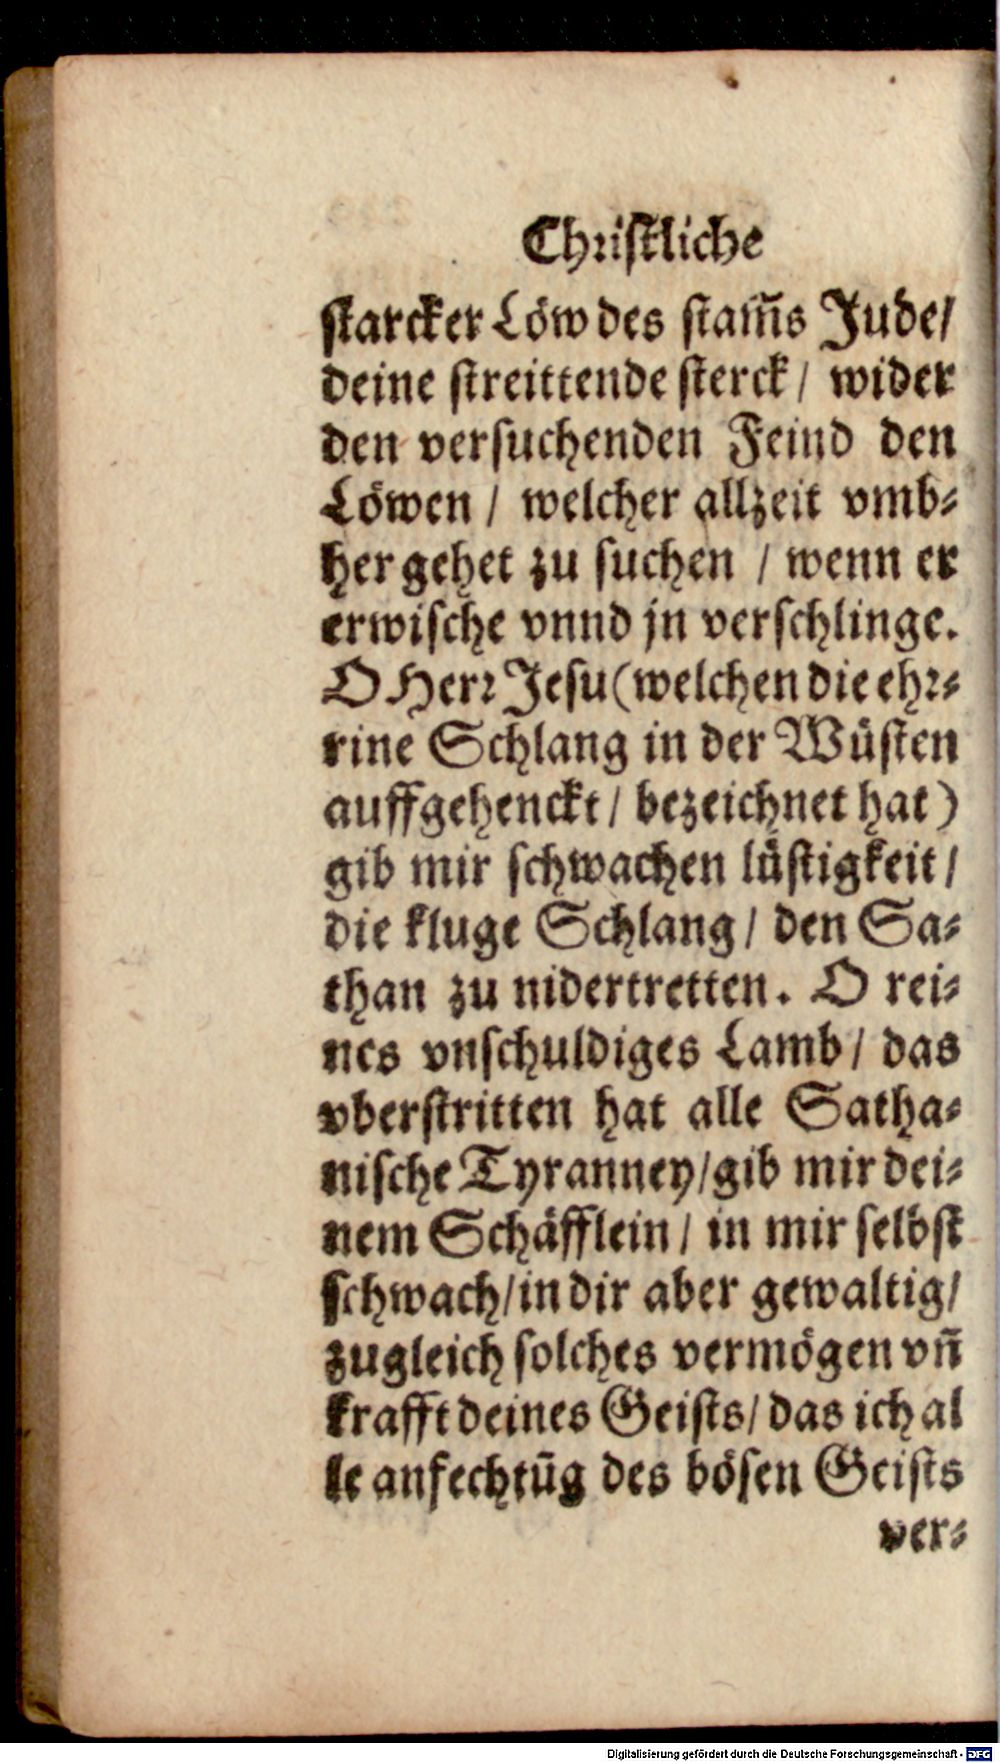 Christliche
starcker Löw des stam̃s Jude/
deine streittende sterck/ wider
den versuchenden Feind den
Löwen/ welcher allzeit vmb-
her gehet zu suchen/ wenn er
erwische vnnd jn verschlinge.
O Herr Jesu (welchen die ehr-
rine Schlang in der Wüsten
auffgehenckt/ bezeichnet hat)
gib mir schwachen lüstigkeit/
die kluge Schlang/ den Sa-
than zu nidertretten. O rei-
nes vnschuldiges Lamb/ das
vberstritten hat alle Satha-
nische Tyranney/ gib mir dei-
nem Schäfflein/ in mir selbst
schwach/ in dir aber gewaltig/
zugleich solches vermögen vñ
krafft deines Geists/ das ich al
le anfechtūg des bösen Geists
ver-
Digitalisierung gefördert durch die Deutsche Forschungsgemeinschaft - DFG